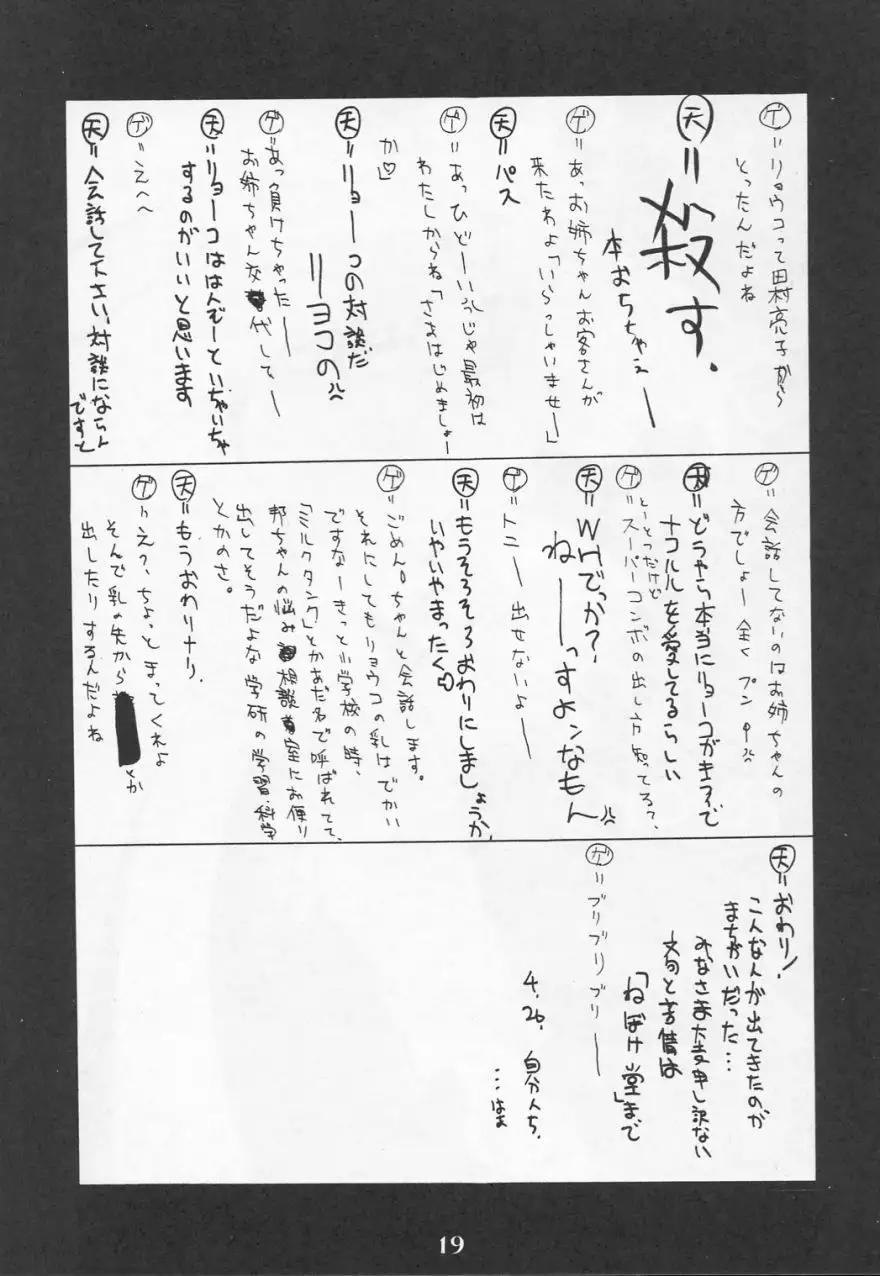 ゲ=リョウコって田村亮子から
とったんだよね
天=殺す.
本おちちゃえー
ゲ=あっお姉ちゃんお客さんが
来たわよ「いらっしゃいませー」
天=パス
ゲ=あっひどーいうじゃ最初は
わたしからね「さあはじめましょー
か♡」
天=リョーコの対談だ
リョコの
ゲ=あっ負けちゃったー
お姉ちゃん交代してー
天=リョーコははんぞーといちゃいちゃ
するのがいいと思います
ゲ=えへへ
天=会話して下さい、対談にならん
ですと
ゲ=会話してないのはお姉ちゃんの
方でしょー全くプンプ
天=どうやら本当にリョーコがキライで
ナコルルを愛してるらしい
ゲ=とーとつだけど
スーパーコンボの出し方知ってる?、
天=WHでっか?.
ねーーっすよンなもん
ゲ=トニー出せないよー
天=もうそろそろおわりにしましょうか
いやいやまったく
ゲ=ごめん。ちゃんと会話します。
それにしてもリョウコの乳はでかい
ですなーきっと小学校の時、
「ミルクタンク」とかあだ名で呼ばれてて、
邦ちゃんの悩み相談室にお便り
出してそうだよな学研の学習・科学
とかのさ。
天=もうおわりナリ.
ゲ=え?、ちょっとまってくれよ
そんで乳の先から とか
出したりするんだよね
天=おわりン!
こんな人が出てきたのが
まちがいだった…
みなさま大変申し訳ない
文句と苦情は
「ねぼけ堂」まで
ゲ=ブリブリブリー
4.26.自分んち.
…はぁ
19